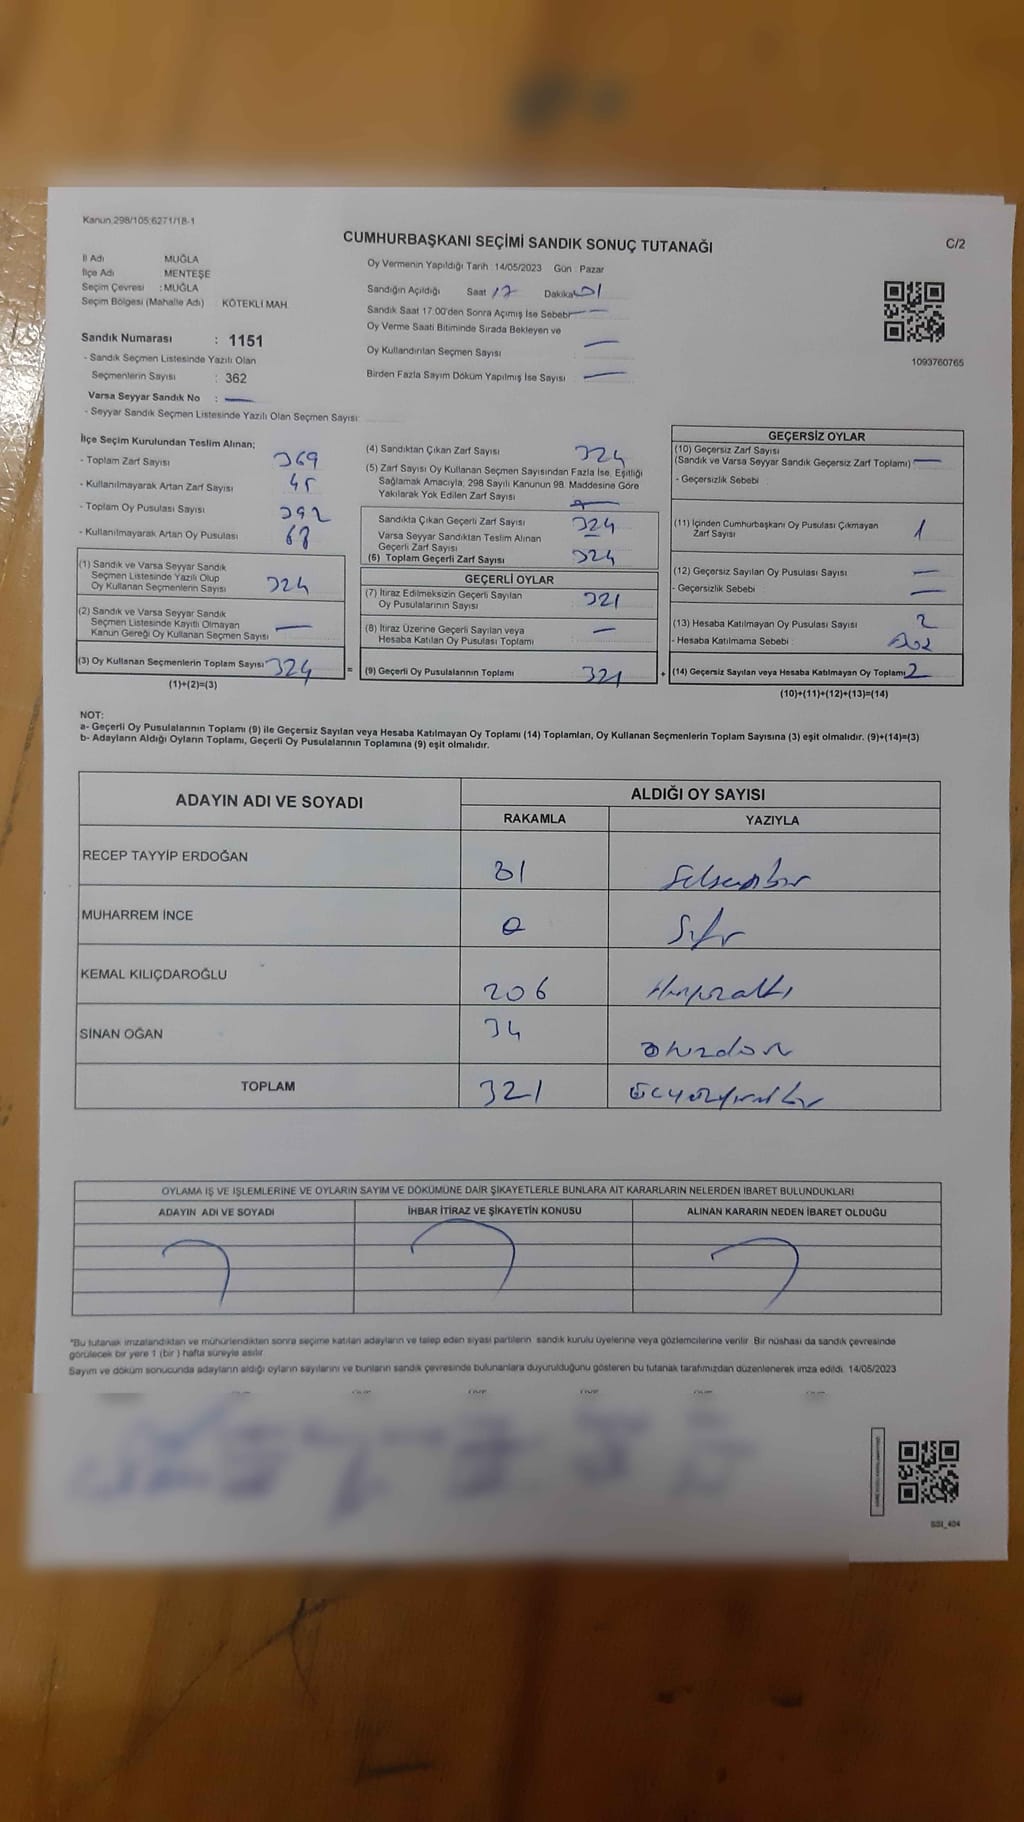 Kanun,298/105,6271/18-1
CUMHURBAŞKANI SEÇİMİ SANDIK SONUÇ TUTANAĞI
C/2
İl Adı MUĞLA
İlçe Adı : MENTEŞE
Seçim Çevresi : MUĞLA
Seçim Bölgesi (Mahalle Adı) : KÖTEKLİ MAH.
Sandık Numarası : 1151
- Sandık Seçmen Listesinde Yazılı Olan
Seçmenlerin Sayısı : 362
Varsa Seyyar Sandık No : —
- Seyyar Sandık Seçmen Listesinde Yazılı Olan Seçmen Sayısı:
Oy Vermenin Yapıldığı Tarih : 14/05/2023 Gün : Pazar
Sandığın Açıldığı Saat 17 Dakika 01
Sandık Saat 17:00'den Sonra Açımış İse Sebebi —
Oy Verme Saati Bitiminde Sırada Bekleyen ve
Oy Kullandırılan Seçmen Sayısı —
Birden Fazla Sayım Döküm Yapılmış İse Sayısı —
1093760765
İlçe Seçim Kurulundan Teslim Alınan;
- Toplam Zarf Sayısı 369
- Kullanılmayarak Artan Zarf Sayısı 45
- Toplam Oy Pusulası Sayısı 392
- Kullanılmayarak Artan Oy Pusulası 68
(1) Sandık ve Varsa Seyyar Sandık
Seçmen Listesinde Yazılı Olup
Oy Kullanan Seçmenlerin Sayısı 324
(2) Sandık ve Varsa Seyyar Sandık
Seçmen Listesinde Kayıtlı Olmayan
Kanun Gereği Oy Kullanan Seçmen Sayısı —
(3) Oy Kullanan Seçmenlerin Toplam Sayısı 324
(1)+(2)=(3)
=
(4) Sandıktan Çıkan Zarf Sayısı 324
(5) Zarf Sayısı Oy Kullanan Seçmen Sayısından Fazla İse, Eşitliği
Sağlamak Amacıyla, 298 Sayılı Kanunun 98. Maddesine Göre
Yakılarak Yok Edilen Zarf Sayısı —
Sandıkta Çıkan Geçerli Zarf Sayısı 324
Varsa Seyyar Sandıktan Teslim Alınan
Geçerli Zarf Sayısı
(6) Toplam Geçerli Zarf Sayısı 324
GEÇERLİ OYLAR
(7) İtiraz Edilmeksizin Geçerli Sayılan
Oy Pusulalarının Sayısı 321
(8) İtiraz Üzerine Geçerli Sayılan veya
Hesaba Katılan Oy Pusulası Toplamı —
(9) Geçerli Oy Pusulalarının Toplamı 321
+
GEÇERSİZ OYLAR
(10) Geçersiz Zarf Sayısı
(Sandık ve Varsa Seyyar Sandık Geçersiz Zarf Toplamı) —
- Geçersizlik Sebebi
(11) İçinden Cumhurbaşkanı Oy Pusulası Çıkmayan
Zarf Sayısı 1
(12) Geçersiz Sayılan Oy Pusulası Sayısı —
- Geçersizlik Sebebi —
(13) Hesaba Katılmayan Oy Pusulası Sayısı 2
- Hesaba Katılmama Sebebi
(14) Geçersiz Sayılan veya Hesaba Katılmayan Oy Toplamı 2
(10)+(11)+(12)+(13)=(14)
NOT:
a- Geçerli Oy Pusulalarının Toplamı (9) ile Geçersiz Sayılan veya Hesaba Katılmayan Oy Toplamı (14) Toplamları, Oy Kullanan Seçmenlerin Toplam Sayısına (3) eşit olmalıdır. (9)+(14)=(3)
b- Adayların Aldığı Oyların Toplamı, Geçerli Oy Pusulalarının Toplamına (9) eşit olmalıdır.
ADAYIN ADI VE SOYADI ALDIĞI OY SAYISI
RAKAMLA YAZIYLA
RECEP TAYYİP ERDOĞAN 81 Seksenbir
MUHARREM İNCE 0 Sıfır
KEMAL KILIÇDAROĞLU 206 İkiyüzaltı
SİNAN OĞAN 34 Otuzdört
TOPLAM 321 Üçyüzyirmibir
OYLAMA İŞ VE İŞLEMLERİNE VE OYLARIN SAYIM VE DÖKÜMÜNE DAİR ŞİKAYETLERLE BUNLARA AİT KARARLARIN NELERDEN İBARET BULUNDUKLARI
ADAYIN ADI VE SOYADI İHBAR İTİRAZ VE ŞİKAYETİN KONUSU ALINAN KARARIN NEDEN İBARET OLDUĞU
*Bu tutanak imzalandıktan ve mühürlendikten sonra seçime katılan adayların ve talep eden siyasi partilerin sandık kurulu üyelerine veya gözlemcilerine verilir. Bir nüshası da sandık çevresinde
görülecek bir yere 1 (bir ) hafta süreyle asılır.
Sayım ve döküm sonucunda adayların aldığı oyların sayılarını ve bunların sandık çevresinde bulunanlara duyurulduğunu gösteren bu tutanak tarafımızdan düzenlenerek imza edildi. 14/05/2023